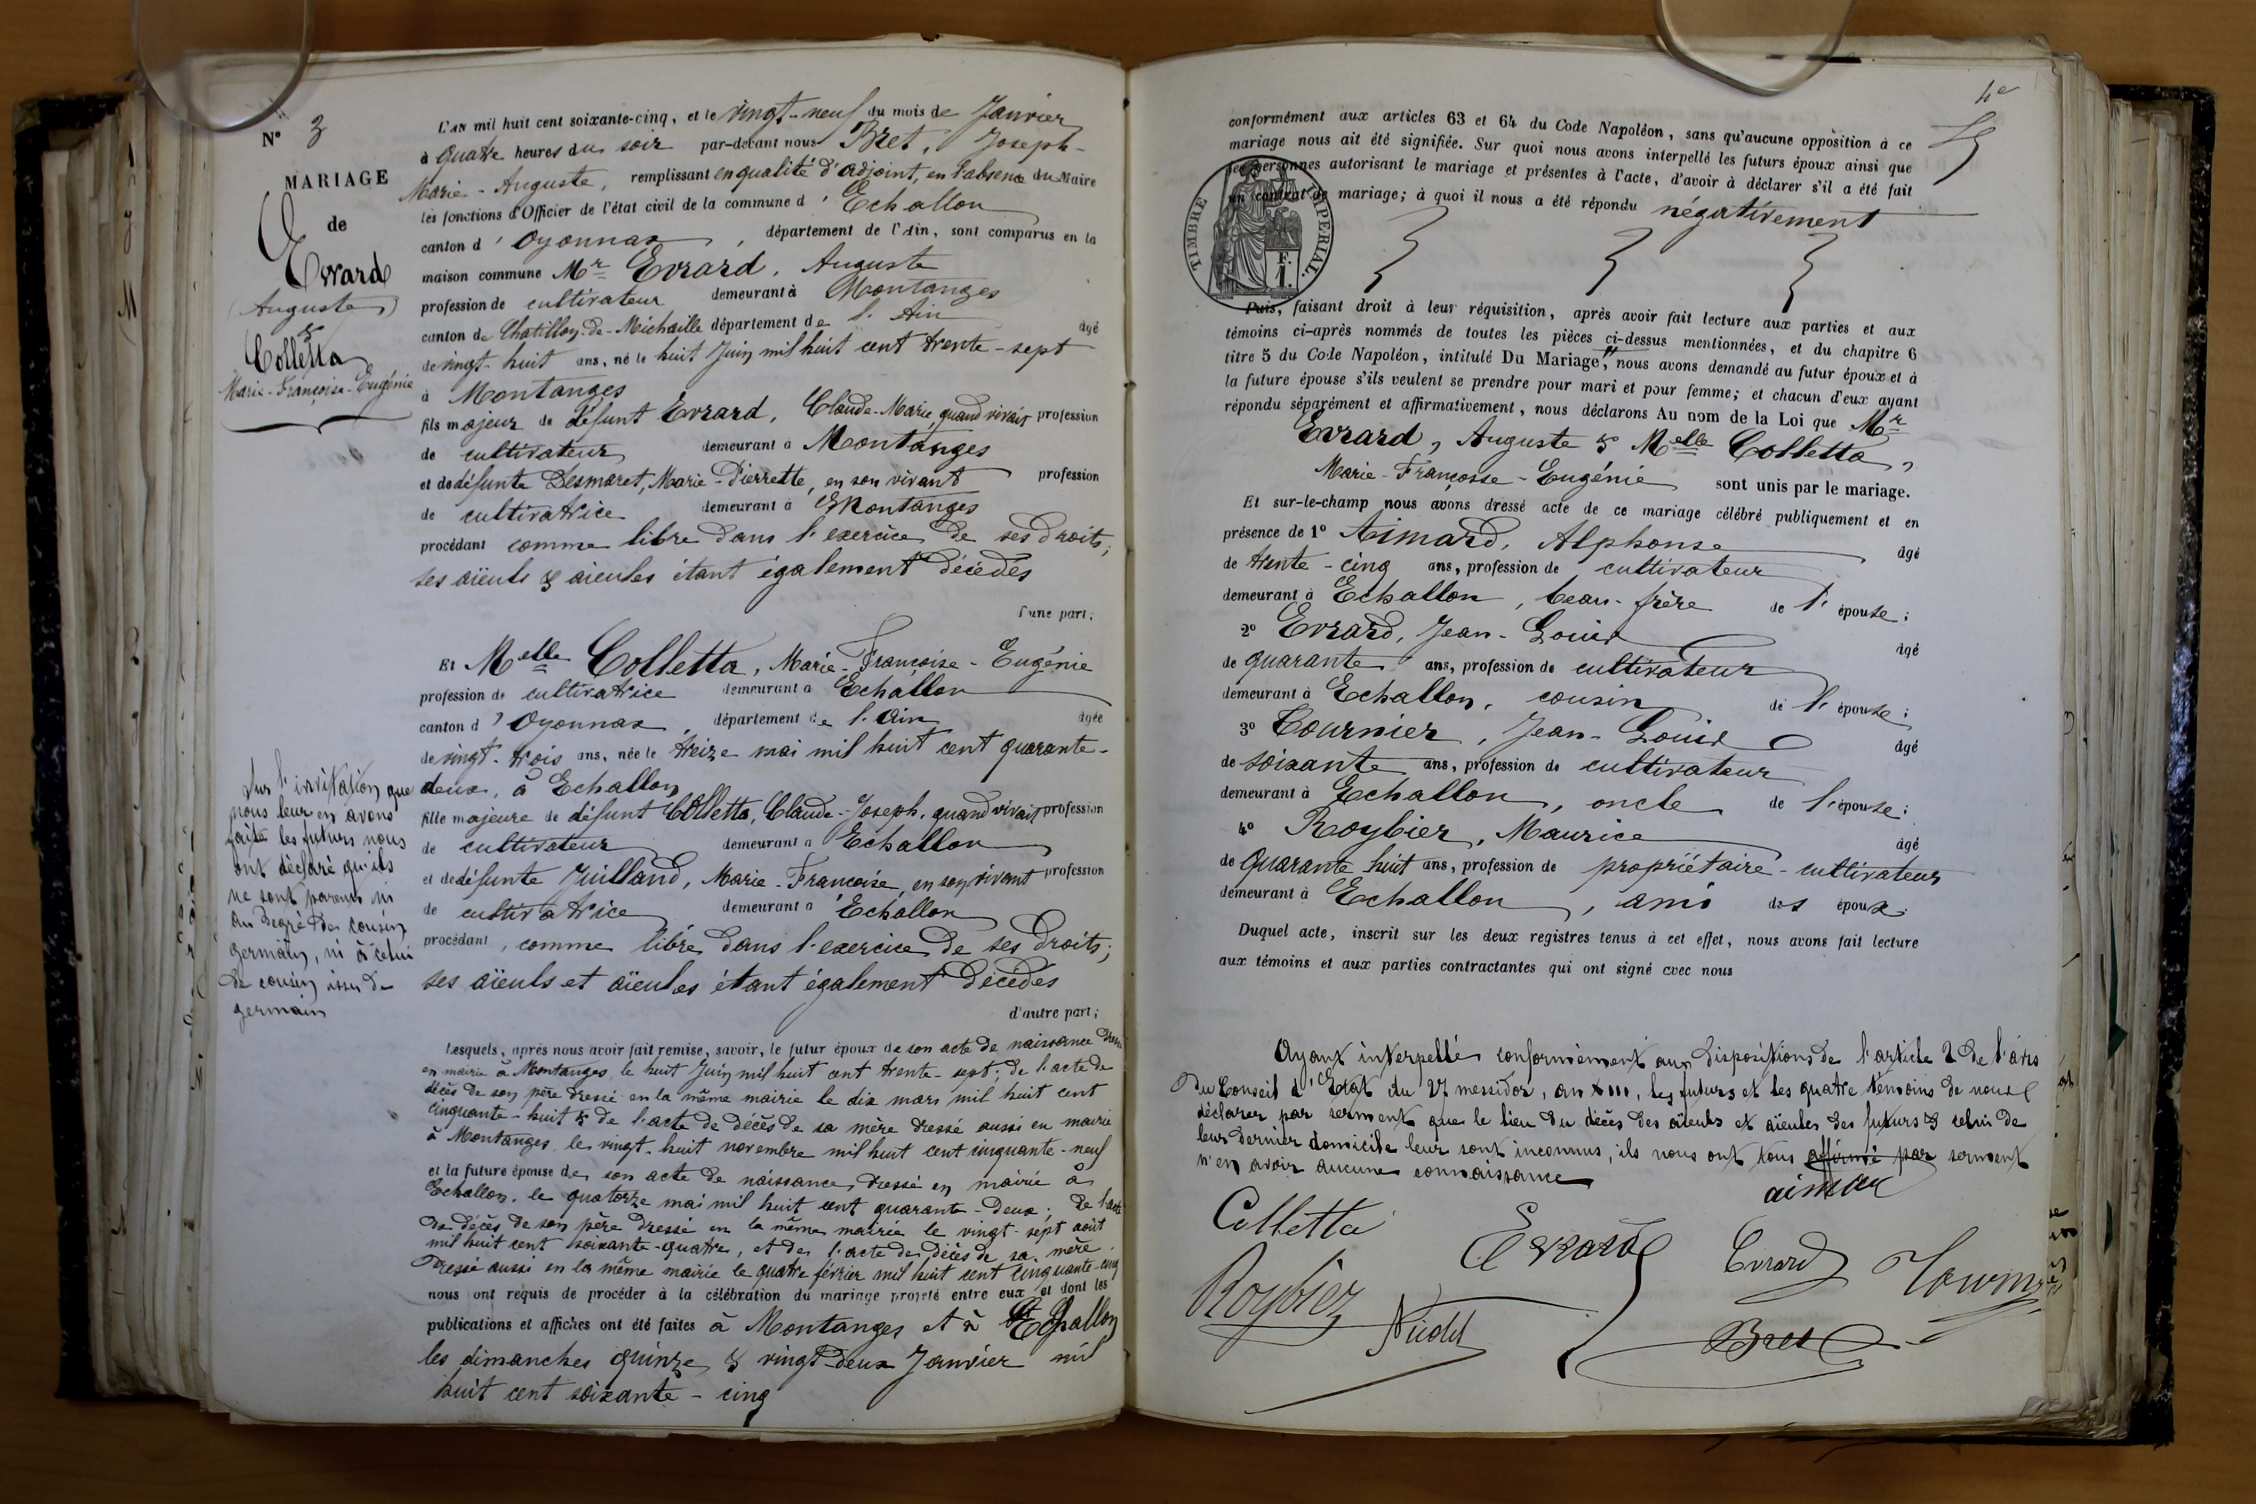 N° 3
MARIAGE
de
Evrard
(Auguste)
&
Colletta
Marie-Françoise-Eugénie
L'an mil huit cent soixante-cinq, et le vingt-neuf du mois de Janvier
à quatre heures du soir par-devant nous Bret, Joseph-
Marie-Auguste, remplissant en qualité d'adjoint, en l'absence du Maire
les fonctions d'Officier de l'état civil de la commune d'Echallon
canton d'Oyonnax, département de l'Ain, sont comparus en la
maison commune Mr Evrard, Auguste
profession de cultivateur demeurant à Montanges
canton de Chatillon-de-Michaille département de l'Ain âgé
de vingt-huit ans, né le huit Juin mil huit cent trente-sept
à Montanges
fils majeur de défunt Evrard, Claude-Marie, quand vivait profession
de cultivateur demeurant à Montanges
et de défunte Desmaret, Marie-Pierrette, en son vivant profession
de cultivatrice demeurant à Montanges
procédant comme libre dans l'exercice de ses droits;
ses aïeuls & aieules étant également décédés
d'une part;
Et Melle Colletta, Marie-Françoise-Eugénie
profession de cultivatrice demeurant à Echallon
canton d'Oyonnax, département de l'Ain âgée
de vingt-trois ans, née le treize mai mil huit cent quarante-
deux, à Echallon
fille majeure de défunt Colletta, Claude-Joseph, quand vivait profession
de cultivateur demeurant à Echallon
et de défunte Juilland, Marie-Françoise, en son vivant profession
de cultivatrice demeurant à Echallon
procédant, comme libre dans l'exercice de ses droits;
ses aïeuls et aïeules étant également décédés
d'autre part;
Sur l'invitation que
nous leur en avons
faite les futurs nous
ont déclaré qu'ils
ne sont parents ni
au degré de cousin
germain, ni à celui
de cousin issu de
germain
Lesquels, après nous avoir fait remise, savoir, le futur époux de son acte de naissance dressé
en mairie à Montanges le huit Juin mil huit cent trente-sept; de l'acte de
décès de son père dressé en la même mairie le dix mars mil huit cent
cinquante-huit & de l'acte de décès de sa mère dressé aussi en mairie
à Montanges le vingt-huit novembre mil huit cent cinquante-neuf
et la future épouse de son acte de naissance dressé en mairie à
Echallon, le quatorze mai mil huit cent quarante-deux; de l'acte
de décès de son père dressé en la même mairie le vingt-sept août
mil huit cent soixante-quatre, et de l'acte de décès de sa mère
dressé aussi en la même mairie le quatre février mil huit cent cinquante-cinq
nous ont requis de procéder à la célébration du mariage projeté entre eux et dont les
publications et affiches ont été faites à Montanges et à Echallon
les dimanches quinze & vingt-deux Janvier mil
huit cent soixante-cinq
4e
conformément aux articles 63 et 64 du Code Napoléon, sans qu'aucune opposition à ce
mariage nous ait été signifiée. Sur quoi nous avons interpellé les futurs époux ainsi que
les personnes autorisant le mariage et présentes à l'acte, d'avoir à déclarer s'il a été fait
un contrat de mariage; à quoi il nous a été répondu négativement
TIMBRE IMPERIAL.
F.
1.
Puis, faisant droit à leur réquisition, après avoir fait lecture aux parties et aux
témoins ci-après nommés de toutes les pièces ci-dessus mentionnées, et du chapitre 6
titre 5 du Code Napoléon, intitulé Du Mariage", nous avons demandé au futur époux et à
la future épouse s'ils veulent se prendre pour mari et pour femme; et chacun d'eux ayant
répondu séparément et affirmativement, nous déclarons Au nom de la Loi que Mr
Evrard, Auguste & Melle Colletta,
Marie-Françoise-Eugénie sont unis par le mariage.
Et sur-le-champ nous avons dressé acte de ce mariage célébré publiquement et en
présence de 1° Aimard, Alphonse âgé
de trente-cinq ans, profession de cultivateur
demeurant à Echallon, beau-frère de l'épouse;
2° Evrard, Jean-Louis âgé
de quarante ans, profession de cultivateur
demeurant à Echallon, cousin de l'épouse;
3° Tournier, Jean-Louis âgé
de soixante ans, profession de cultivateur
demeurant à Echallon, oncle de l'épouse;
4° Roybier, Maurice âgé
de Quarante huit ans, profession de propriétaire-cultivateur
demeurant à Echallon, ami des époux.
Duquel acte, inscrit sur les deux registres tenus à cet effet, nous avons fait lecture
aux témoins et aux parties contractantes qui ont signé avec nous
Ayant interpellé conformément aux dispositions de l'article 2 de l'avis
du Conseil d'Etat du 27 messidor, an XIII, les futurs et les quatre témoins de nous
déclarer par serment que le lieu du décès des aïeuls et aïeules des futurs & celui de
leur dernier domicile leur sont inconnus, ils nous ont tous affirmé par serment
n'en avoir aucune connaissance
aimard
Colletta
Evrard
Evrard
Tournier
Roybier
Bret